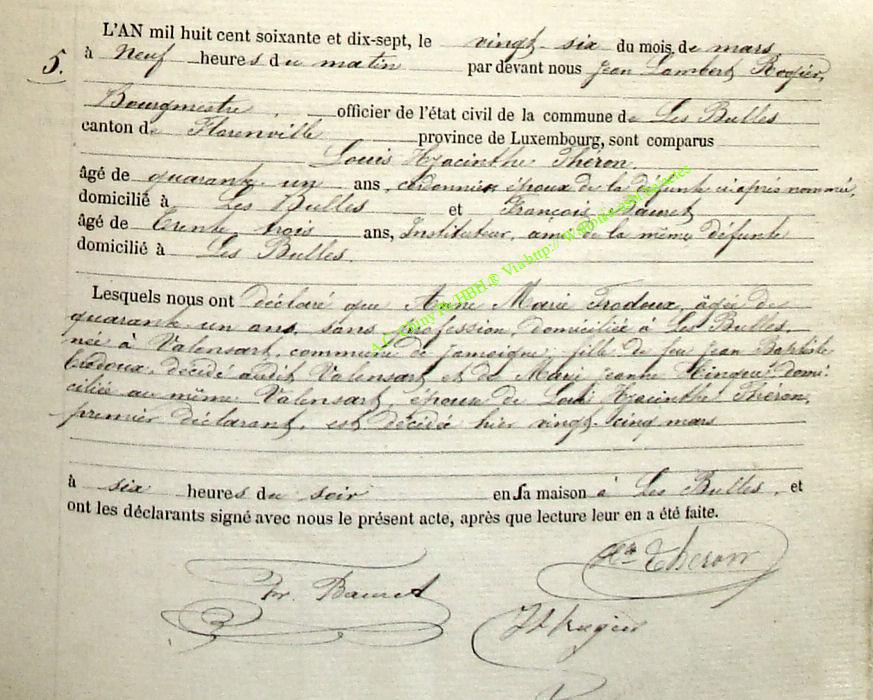 L'AN mil huit cent soixante et dix-sept, le vingt-six du mois de mars
5. à Neuf heures du matin par devant nous Jean Lambert Rogier,
Bourgmestre, officier de l'état civil de la commune de Les Bulles
canton de Florenville province de Luxembourg, sont comparus
Louis Hyacinthe Théron,
âgé de quarante un ans, cordonnier époux de la défunte ci après nommée,
domicilié à Les Bulles et François Bauret
âgé de trente trois ans, Instituteur, ami de la même défunte
domicilié à Les Bulles.
Lesquels nous ont déclaré que Anne Marie Trodoux, âgée de
quarante un ans, sans profession, domiciliée à Les Bulles,
née à Valensart, commune de Jamoigne, fille de feu Jean Baptiste
Trodoux, décédé audit Valensart et de Marie Jeanne domi-
ciliée au même Valensart, épouse de Louis Hyacinthe Théron,
premier déclarant, est décédée hier vingt-cinq mars
à six heures du soir en sa maison à Les Bulles, et
ont les déclarants signé avec nous le présent acte, après que lecture leur en a été faite.
Hte Théron
Fr. Bauret